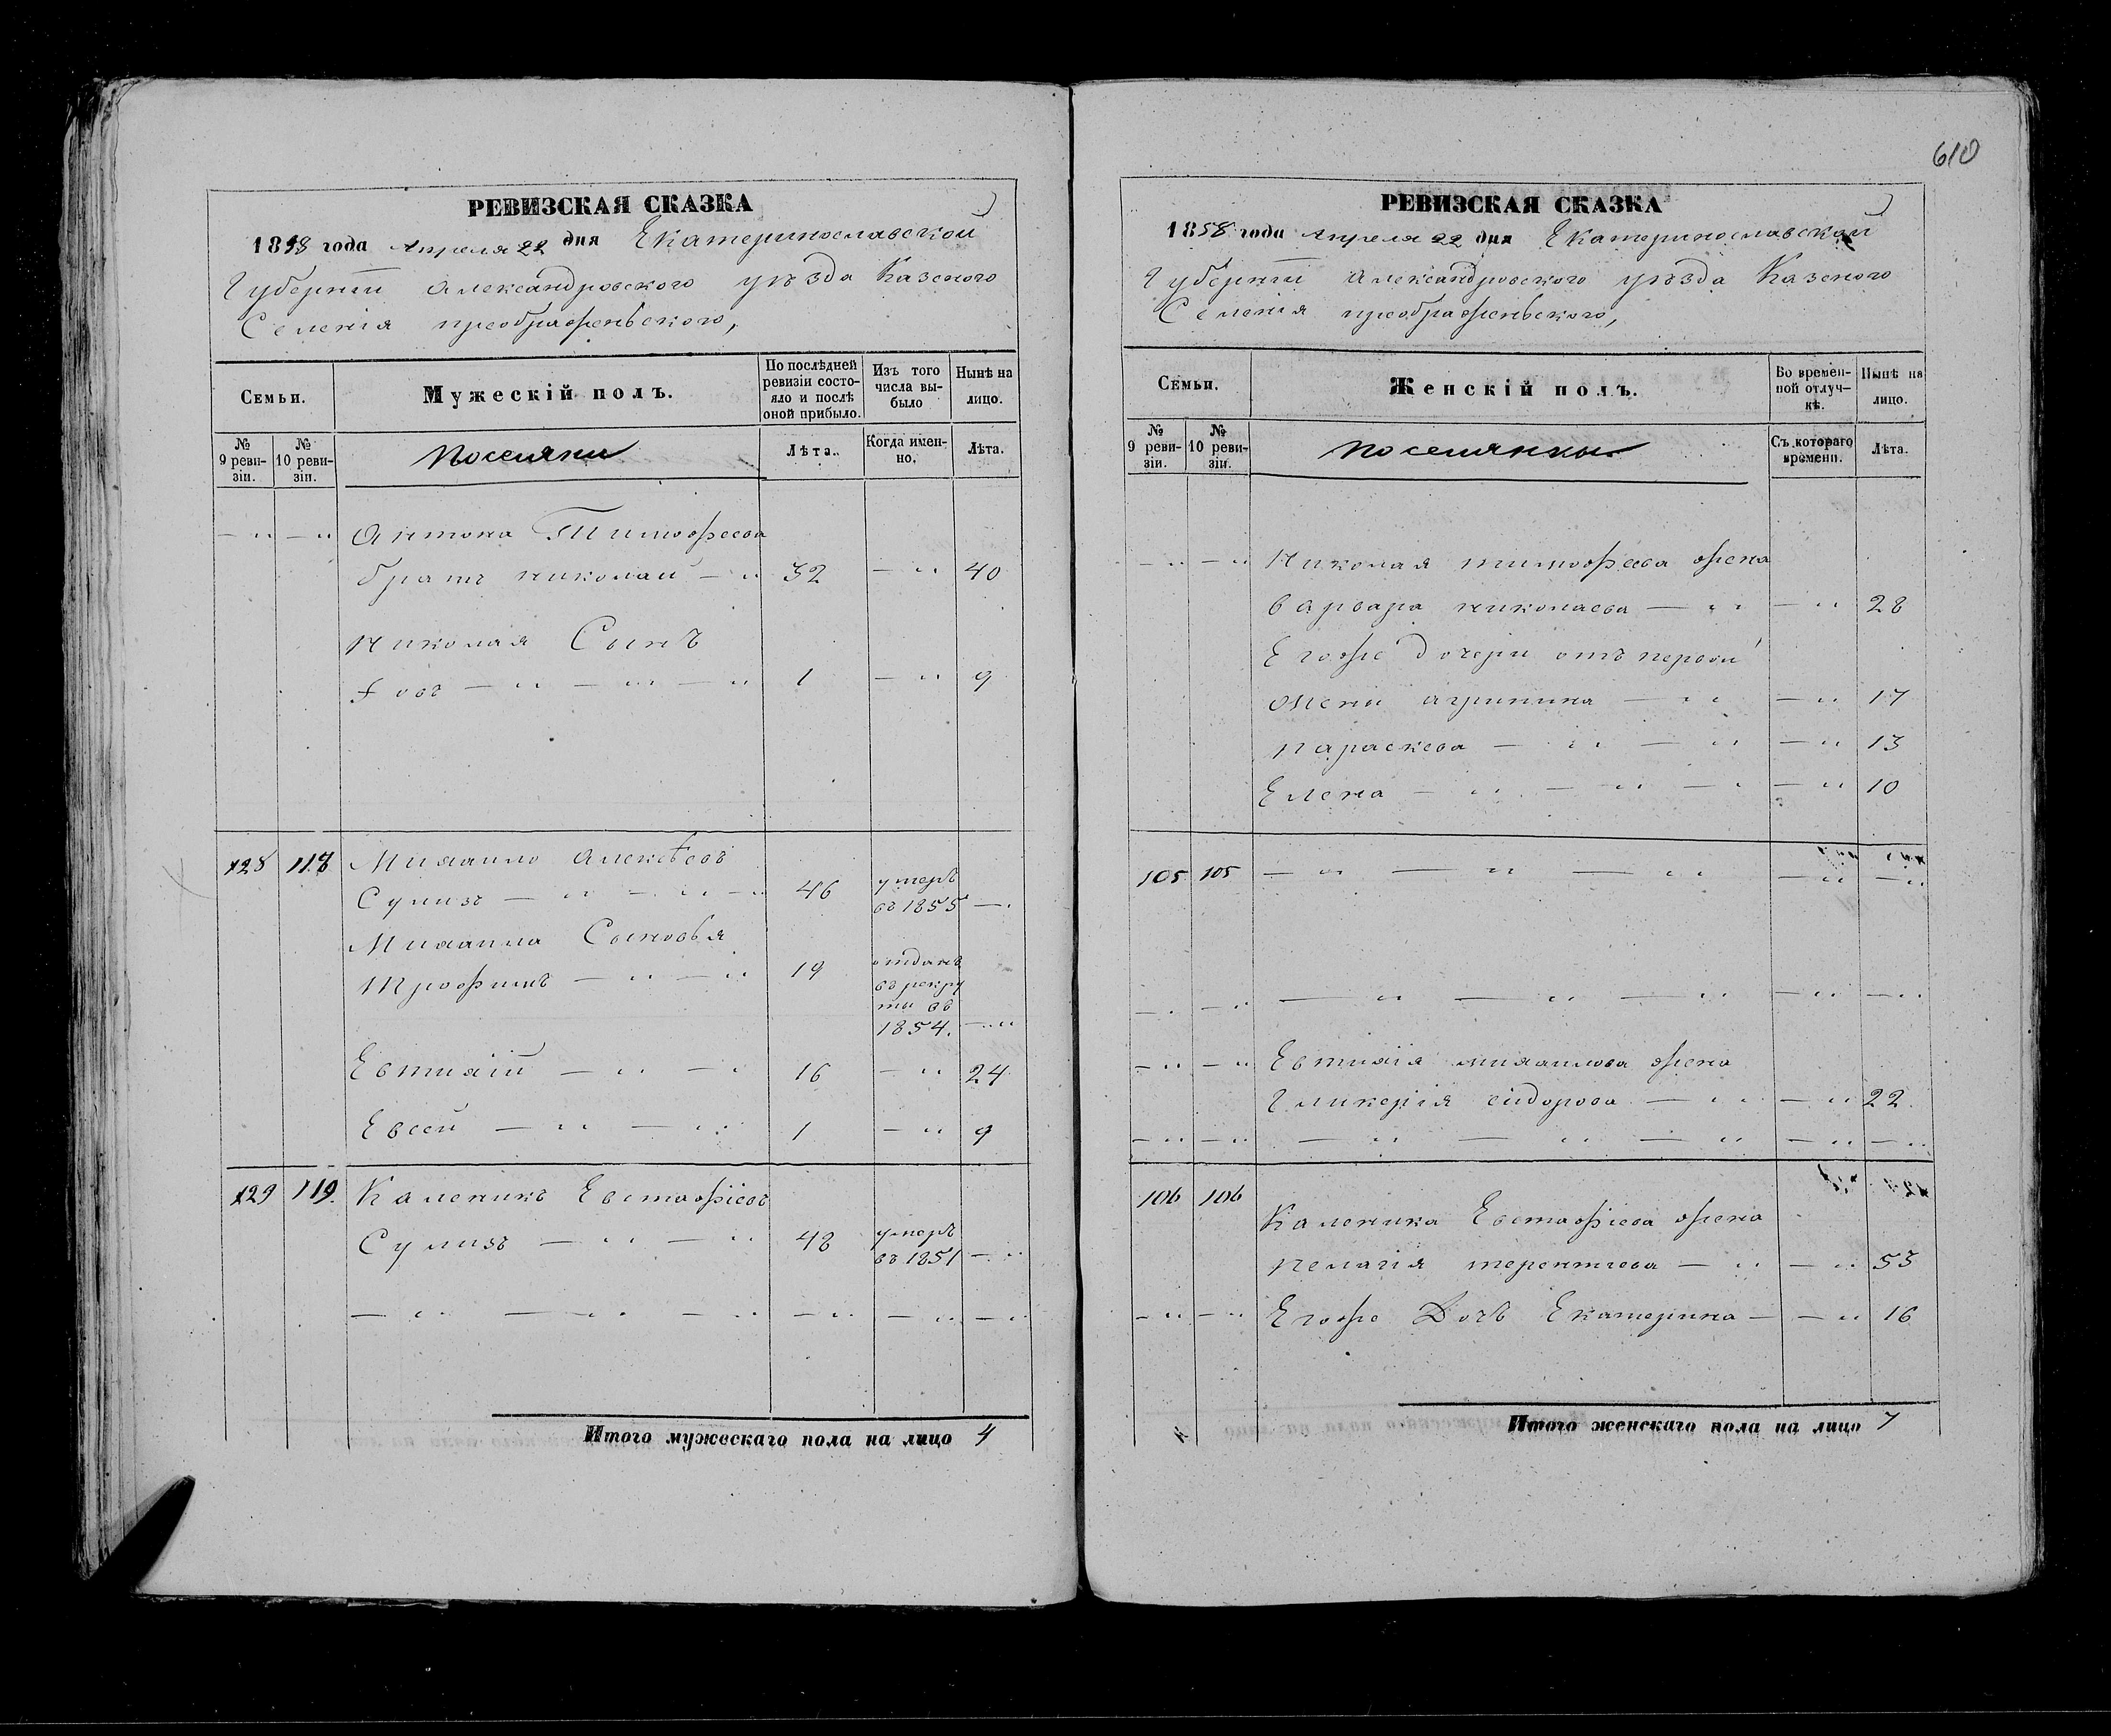 610
РЕВИЗСКАЯ СКАЗКА
1858 года Апреля 22 дня Екатеринославской
Губерніи Александровского уезда Казеного
Селенія преображеньского,
Семьи.
Мужескій полъ.
По послѣдней ревизіи состо-
яло и послѣ оной прибыло.
Изъ того числа вы-
было
Нынѣ на лицо.
№ 9 реви-
зіи.
№ 10 реви-
зіи.
Поселяни
Лѣта.
Когда имен-
но.
Лѣта.
Антона Тимофеева
братъ николай 32 40
Николая Сынъ
1 9
128 118 Михаило Алексѣевъ
Сулизъ 46 умеръ въ 1855
Михаила Сыновья
Трофимъ 19 отданъ въ рекру
ти въ 1854.
Евтихій 16 24
Евсей 1 9
129 119. Каленикъ Евстафіевъ
Сулизъ 48 умеръ въ 1851
Итого мужескаго пола на лицо 4
РЕВИЗСКАЯ СКАЗКА
1858 года Апреля 22 дня Екатеринославской
Губерніи Александровского уезда Казеного
Селенія преображеньского,
Семьи.
Женскій полъ.
Во времен-
ной отлуч-
кѣ.
Нынѣ на лицо.
№ 9 реви-
зіи.
№ 10 реви-
зіи.
поселянки
Съ котораго времени.
Лѣта.
Николая тимофеева жена
варвара николаева 28
Егоже дочери отъ первой
жени агрипина 17
параскева 13
Елена 10
105 105
Евтихія михаилова жена
Гликерія сидорова 22.
106 106
Каленика Евстафіева жена
пелагія терентіева 53
Егоже Дочь Екатерина 16
Итого женскаго пола на лицо 7